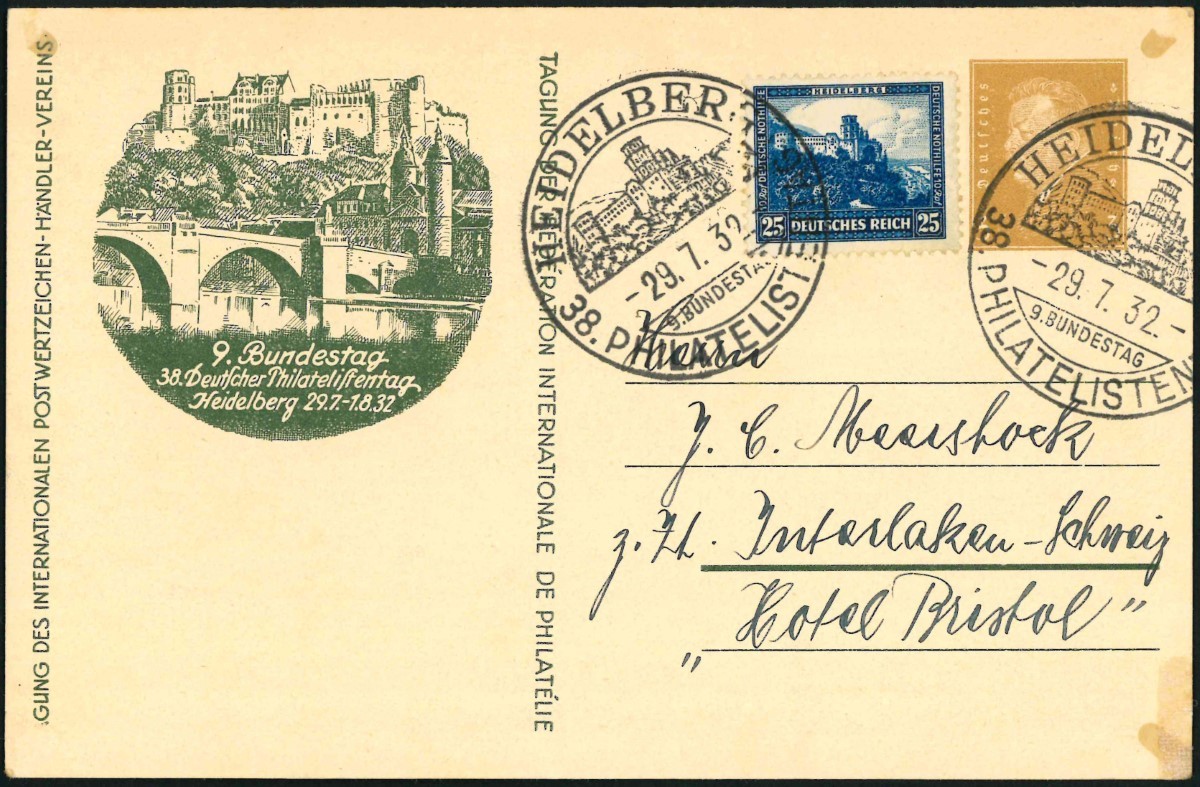 GUNG DES INTERNATIONALEN POSTWERTZEICHEN-HÄNDLER-VEREINS
9. Bundestag
38. Deutscher Philatelistentag
Heidelberg 29.7.-1.8.32
TAGUNG DER FEDERATION INTERNATIONALE DE PHILATÉLIE
HEIDELBERG
-29. 7. 32
9. BUNDESTAG
38. PHILATELIST
HEIDELBERG
DEUTSCHE NOTHILFE
DEUTSCHE NOTHILFE 10 Rpf
25 DEUTSCHES REICH 25
Deutsches
HEIDEL
-29. 7. 32.-
9. BUNDESTAG
38. PHILATELISTEN
Herrn
J. C. Meershoek
z. Zt. Interlaken-Schweiz
"Hotel Bristol"